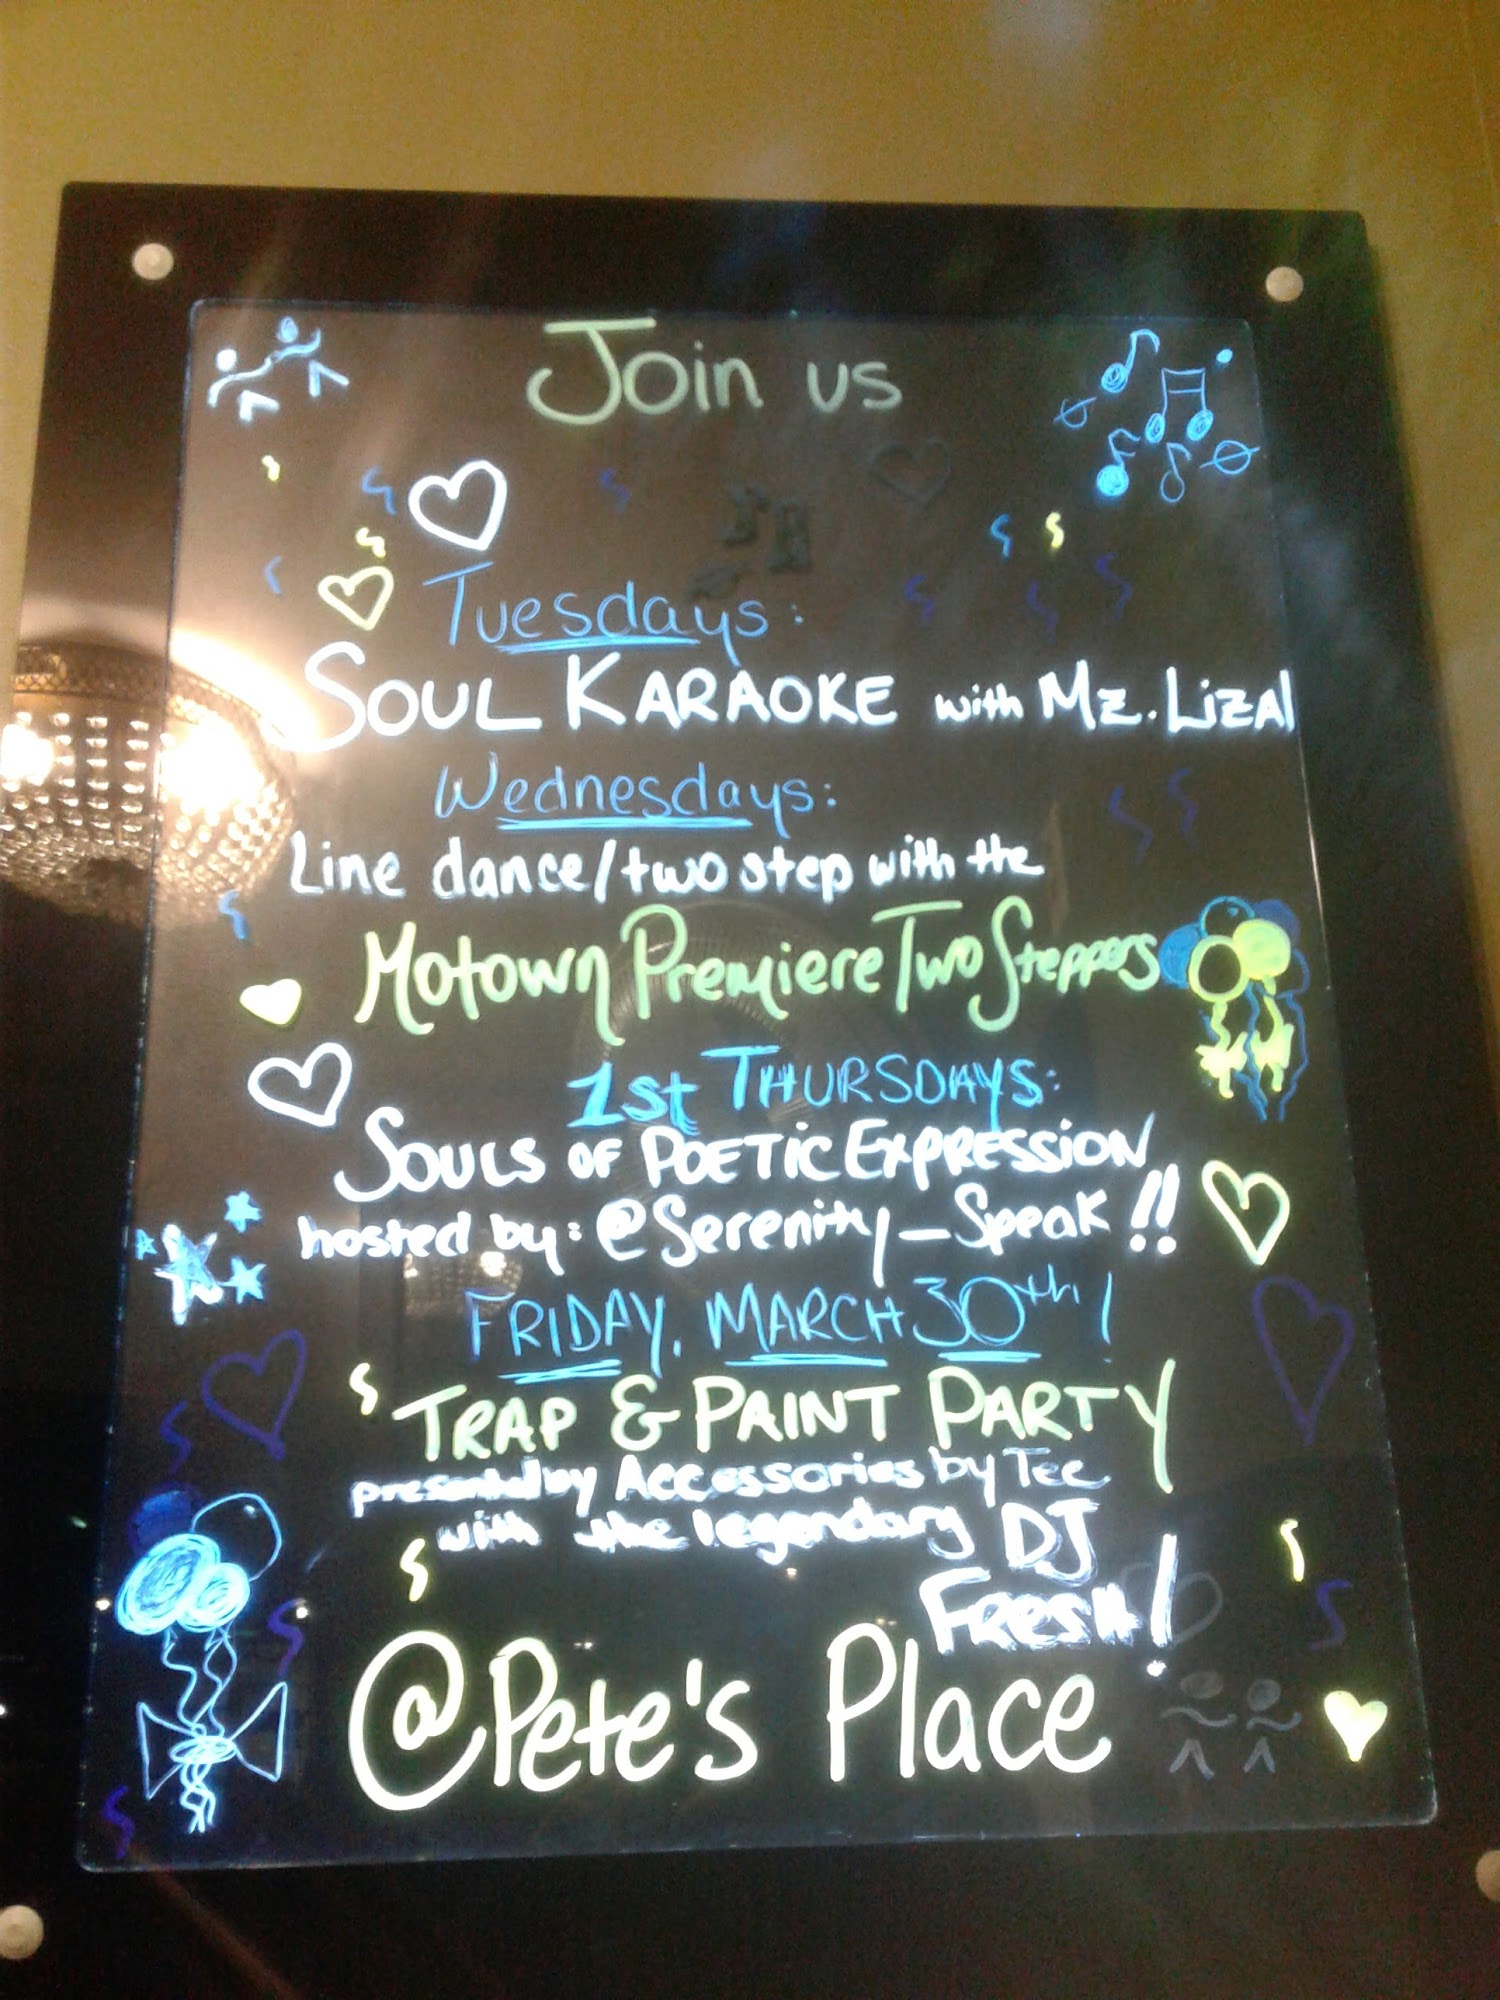 Join us
Tuesdays:
SOUL KARAOKE with Mz. Liza!
Wednesdays:
Line dance/two step with the
Motown Premiere Two Steppers
1st THURSDAYS:
SOULS OF POETIC EXPRESSION
hosted by: @Serenity_Speak!!
FRIDAY, MARCH 30th!
TRAP & PAINT PARTY
presented by Accessories by Tee
with the legendary DJ
FRESH!
@Pete's Place